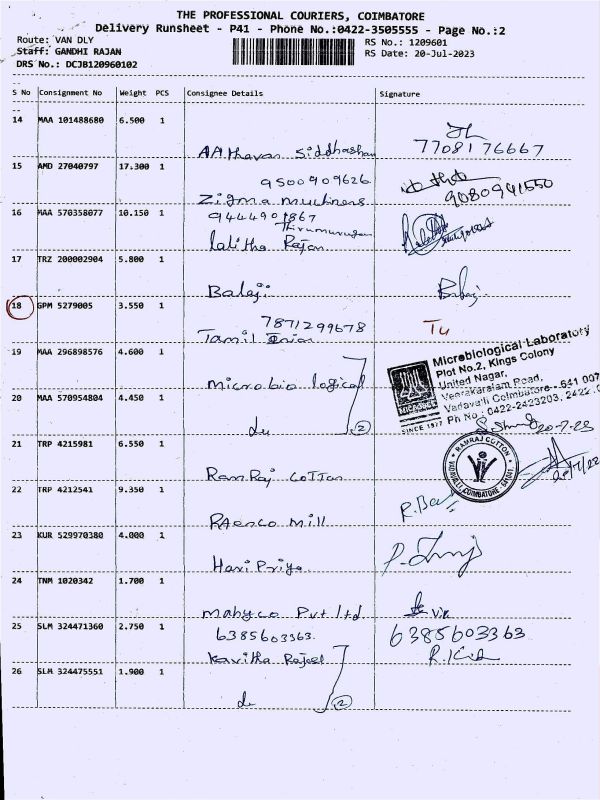 THE PROFESSIONAL COURIERS, COIMBATORE
Delivery Runsheet - P41 - Phone No.:0422-3505555 - Page No.:2
Route: VAN DLY
RS No.: 1209601
Staff: GANDHI RAJAN
RS Date: 20-Jul-2023
DRS No.: DCJB120960102
S No Consignment No Weight PCS Consignee Details Signature
14 MAA 101488680 6.500 1
AAthavan Siddhashan 7708176667
15 AMD 27040797 17.300 1
9500909626 9080941550
Zigma Machiners
16 MAA 570358077 10.150 1
9444901867
Thirumurugan
Lalitha Rajan
17 TRZ 200002904 5.800 1
Balaji Balaji
18 GPM 5279005 3.550 1
7871299678 Tu
Tamil
19 MAA 296898576 4.600 1
Microbiological
Microbiological Laboratory
Plot No.2, Kings Colony
United Nagar,
Veerakeralam Road,
Vadavalli Coimbatore - 641 007
Ph No : 0422-2423203, 2422
SINCE 1977
20 MAA 570954804 4.450 1
du 2
20-7-23
21 TRP 4215981 6.550 1
RamRaj Cotton
RAMRAJ COTTON
VADAVALLI, COIMBATORE - 641041
22 TRP 4212541 9.350 1
RAenco Mill
23 KUR 529970380 4.000 1
Hari Priya
24 TNM 1020342 1.700 1
Mahyco Pvt ltd
25 SLM 324471360 2.750 1
6385603363 6385603363
Kavitha Rajeel
26 SLM 324475551 1.900 1
du 2